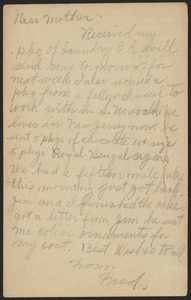 Dear Mother-
Received my
pkg of laundry O.K. will
send some to-morrow for
next week. I also received a
pkg from a fellow I used to
work with in S. Norwalk he
lives in New Jersey now. he
sent 5 pkgs of chocolate 10¢ size
5 pkgs Royal Bengal cigars
We had a fifteen mile hike
this morning just got back.
Jim and I finished the cake
got a letter from Jim he sent
me collar ornaments for
my coat. Best Wishes to all
From
Fred.